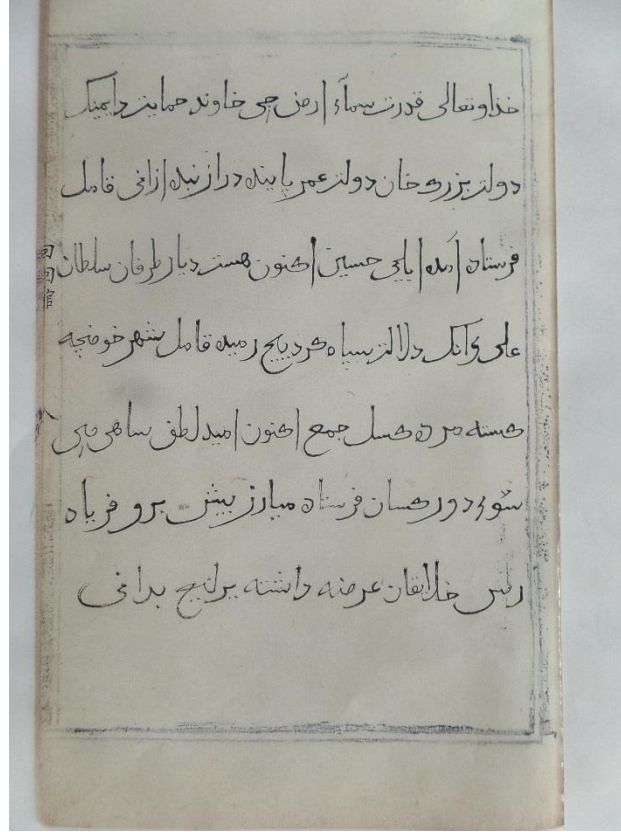 خداوتعالی قدرت سمآء ارض چی خاوند حمایت دایمیک
دولت بزرک خان دولت عمر پاینده دراز نبده ازافی قامل
فرستاده آمده ایلچی حسین اکنون هست دیار طرفان سلطان
علی رانک دلالت سپاه کرد رمیده قامل شهر
کسته مرده کسل جمع اکنون امید لطف ساهی می
سوی دور کسان فرستاده مبارز بیش برو فریاه
رس خلایقان عرضه داشته یرلیج بدانی
回回館
八